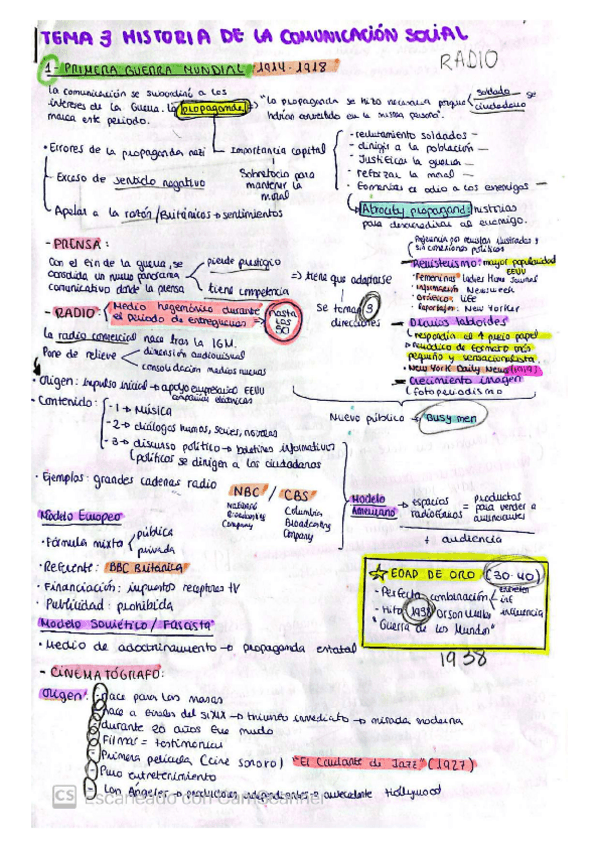 TEMA 3 HISTORIA DE LA COMUNICACIÓN SOCIAL
RADIO
1- PRIMERA GUERRA MUNDIAL (1914-1918)
La comunicación se subordina a los
intereses de la Guerra. La propaganda
marca este periodo.
"La propaganda se hizo necesaria porque soldado
ciudadano se
habían convertido en la misma persona".
• Errores de la propaganda nazi
Importancia capital
- reclutamiento soldados
- dirigir a la población
- Justificar la guerra
- reforzar la moral
- Fomentar el odio a los enemigos
Exceso de sentido negativo
Sobretodo para
mantener la
moral
Apelar a la razón / Británicos → sentimientos
Atrocity propaganda: historias
para desacreditar al enemigo.
- PRENSA:
Con el fin de la guerra, se
consolida un nuevo panorama
comunicativo donde la prensa
pierde prestigio
tiene competencia
⇒ tiene que adaptarse
Se toman 3
direcciones
Preferencia por revistas ilustradas y
sin conexiones políticas
mayor popularidad
EEUU
• Femeninas: Ladies Home Journal
• Información: Newsweek
LIFE
• Reportajes: New Yorker
Diarios tabloides
respondía al ↑ precio papel
periódico de formato más
pequeño y sensacionalista.
• New York Daily News (1919)
crecimiento imagen
(fotoperiodismo
- RADIO: Medio hegemónico durante
el periodo de entreguerras ⇒ hasta
los
50
La radio comercial nace tras la IGM.
Pone de relieve
dimensión audiovisual
consolidación medios nuevos
• Origen: impulso inicial → apoyo empresarial EEUU
compañías eléctricas
Nuevo público → Busy men
• Contenido:
- 1 → Música
- 2 → diálogos humor, series, novelas
- 3 → discurso político → boletines informativos
(políticos se dirigen a los ciudadanos
• Ejemplos: grandes cadenas radio
NBC / CBS
National
Broadcasting
Company
Columbia
Broadcasting
Company
Modelo
Americano
→ espacios
radiofónicos = productos
para vender a
anunciantes
+ audiencia
Modelo Europeo
• Fórmula mixta
pública
privada
• Referente: BBC Británica
• Financiación: impuestos receptores TV
• Publicidad: prohibida
EDAD DE ORO (30-40)
- Perfecta combinación
influencia
- Hito: 1938 Orson Welles
"Guerra de los Mundos"
1938
Modelo Soviético / Fascista
• Medio de adoctrinamiento → propaganda estatal
- CINEMATÓGRAFO:
Origen:
- nace para las masas
- nace a finales del S.XIX → triunfo inmediato → mirada moderna
- durante 20 años fue mudo
- Filmar = testimoniar
- Primera película (cine sonoro) "El Cantante de Jazz" (1927)
- Puro entretenimiento
- Los Ángeles → productores independientes → antecedente Hollywood
CS Escaneado con CamScanner